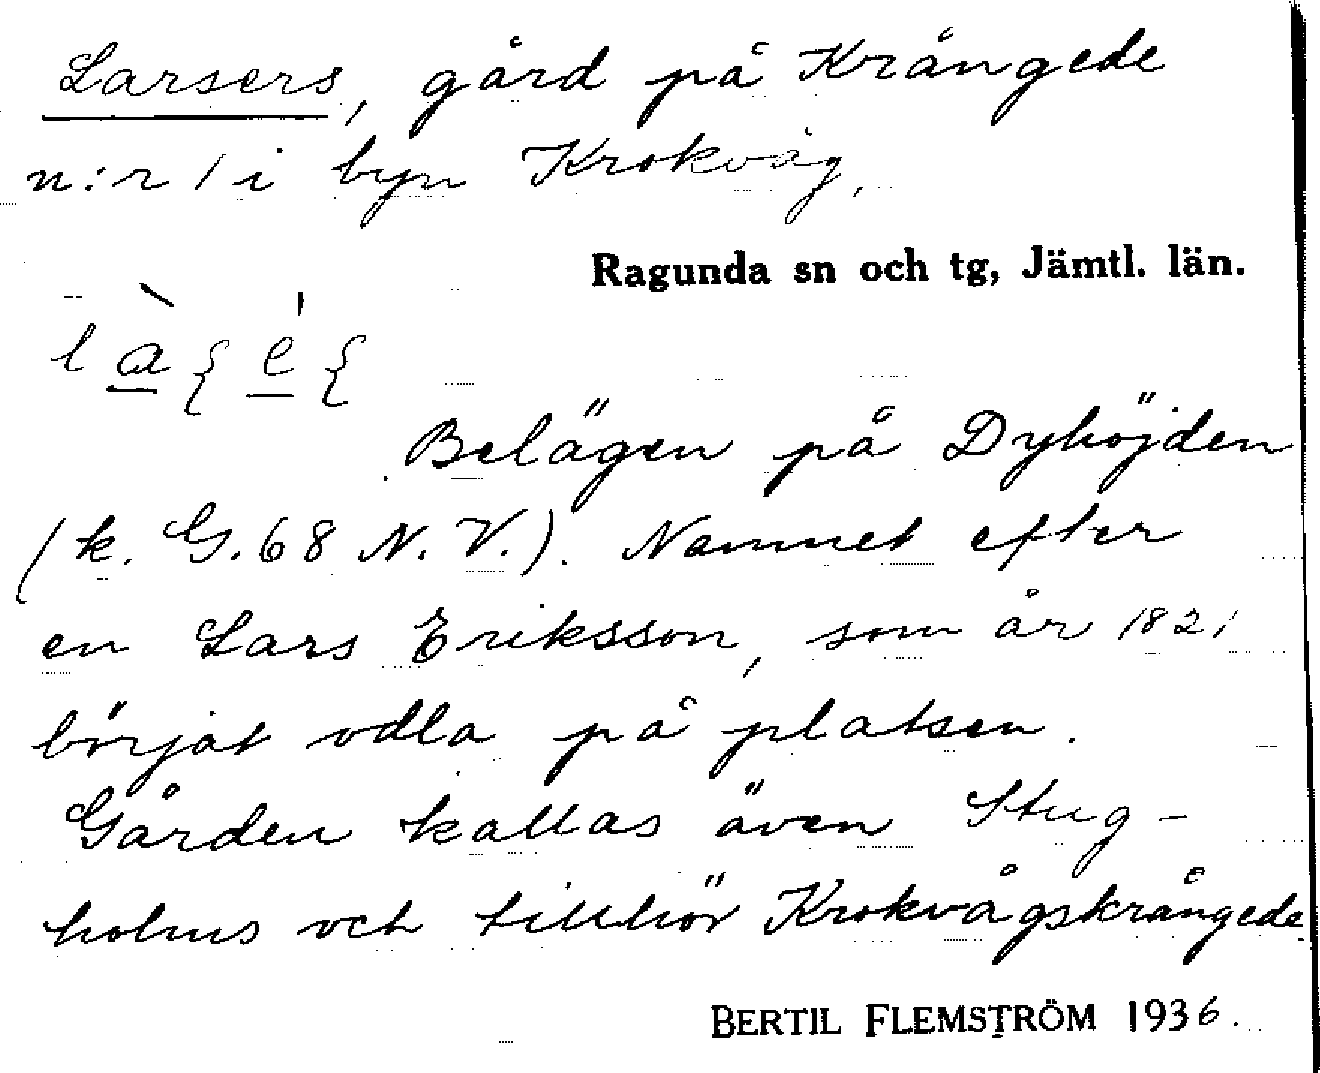 Larsers, gård på Krångede
n:r 1 i byn Krokvåg,
Ragunda sn och tg, Jämtl. län.
Belägen på Dyhöjden
(k. G. 68 N. V.). Namnet efter
en Lars Eriksson, som år 1821
börjat odla på platsen.
Gården kallas även Stug-
holms och tillhör Krokvågskrångede
BERTIL FLEMSTRÖM 1936.